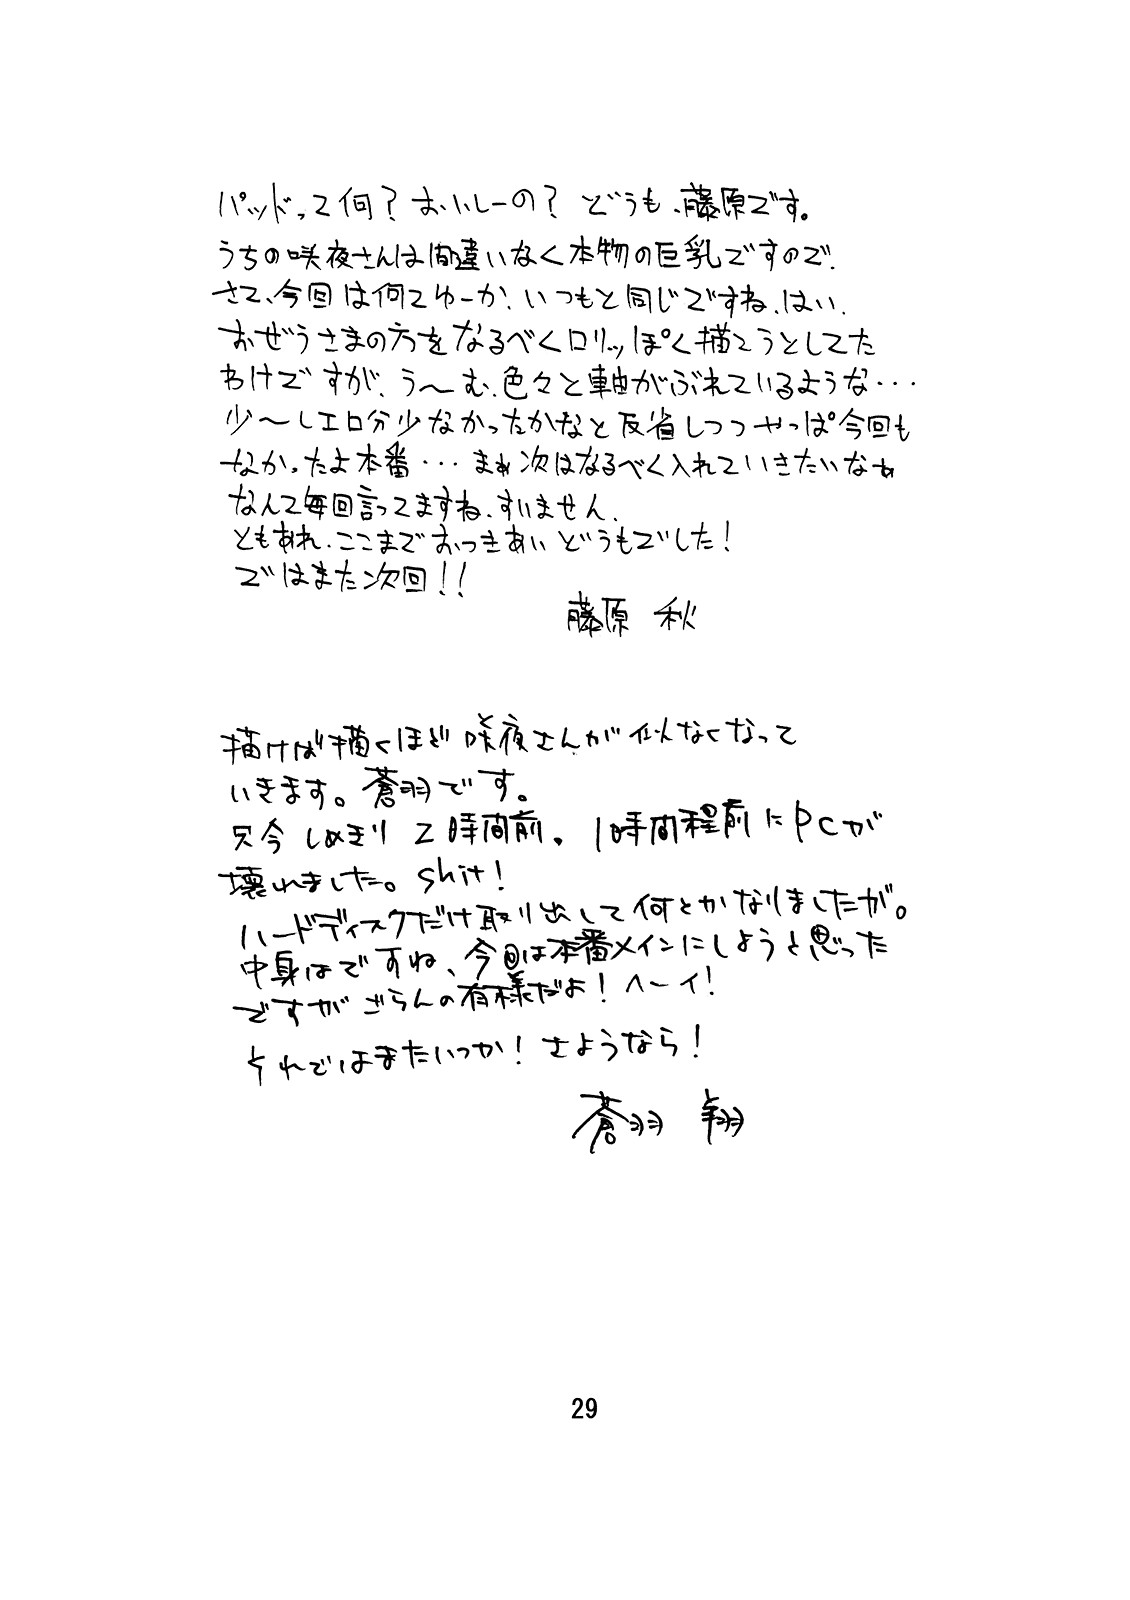 パッドって何？おいしーの？ どうも、藤原です。
うちの咲夜さんは間違いなく本物の巨乳ですので、
さて、今回は何てゆーか、いつもと同じですね、はい、
おぜうさまの方をなるべくロリッぽく描こうとしてた
わけですが、う〜む、色々と軸がぶれているような・・・
少〜しエロ分少なかったかなと反省しつつやっぱ今回も
なかったよ本番・・・まぁ次はなるべく入れていきたいなぁ
なんて毎回言ってますね、すいません、
ともあれ、ここまでおつきあいどうもでした！
ではまた次回！！
藤原 秋
描けば描くほど咲夜さんが似なくなって
いきます。蒼羽です。
只今しめきり2時間前。1時間程前にPCが
壊れました。shit！
ハードディスクだけ取り出して何とかなりましたが。
中身はですね、今回は本番メインにしようと思った
ですがごらんの有様だよ！ヘーイ！
それではまたいつか！さようなら！
蒼羽 翔
29